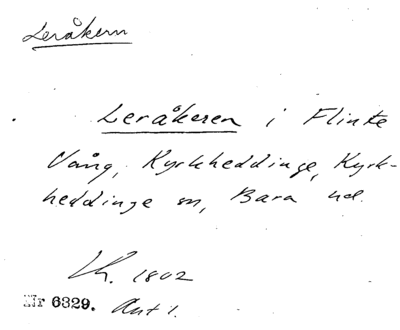 Leråkern
Leråkeren i Flinke
Vång, Kyrkheddinge, Kyrk-
heddinge sn, Bara hd.
Lh. 1802
Nr 6329. Akt 1.